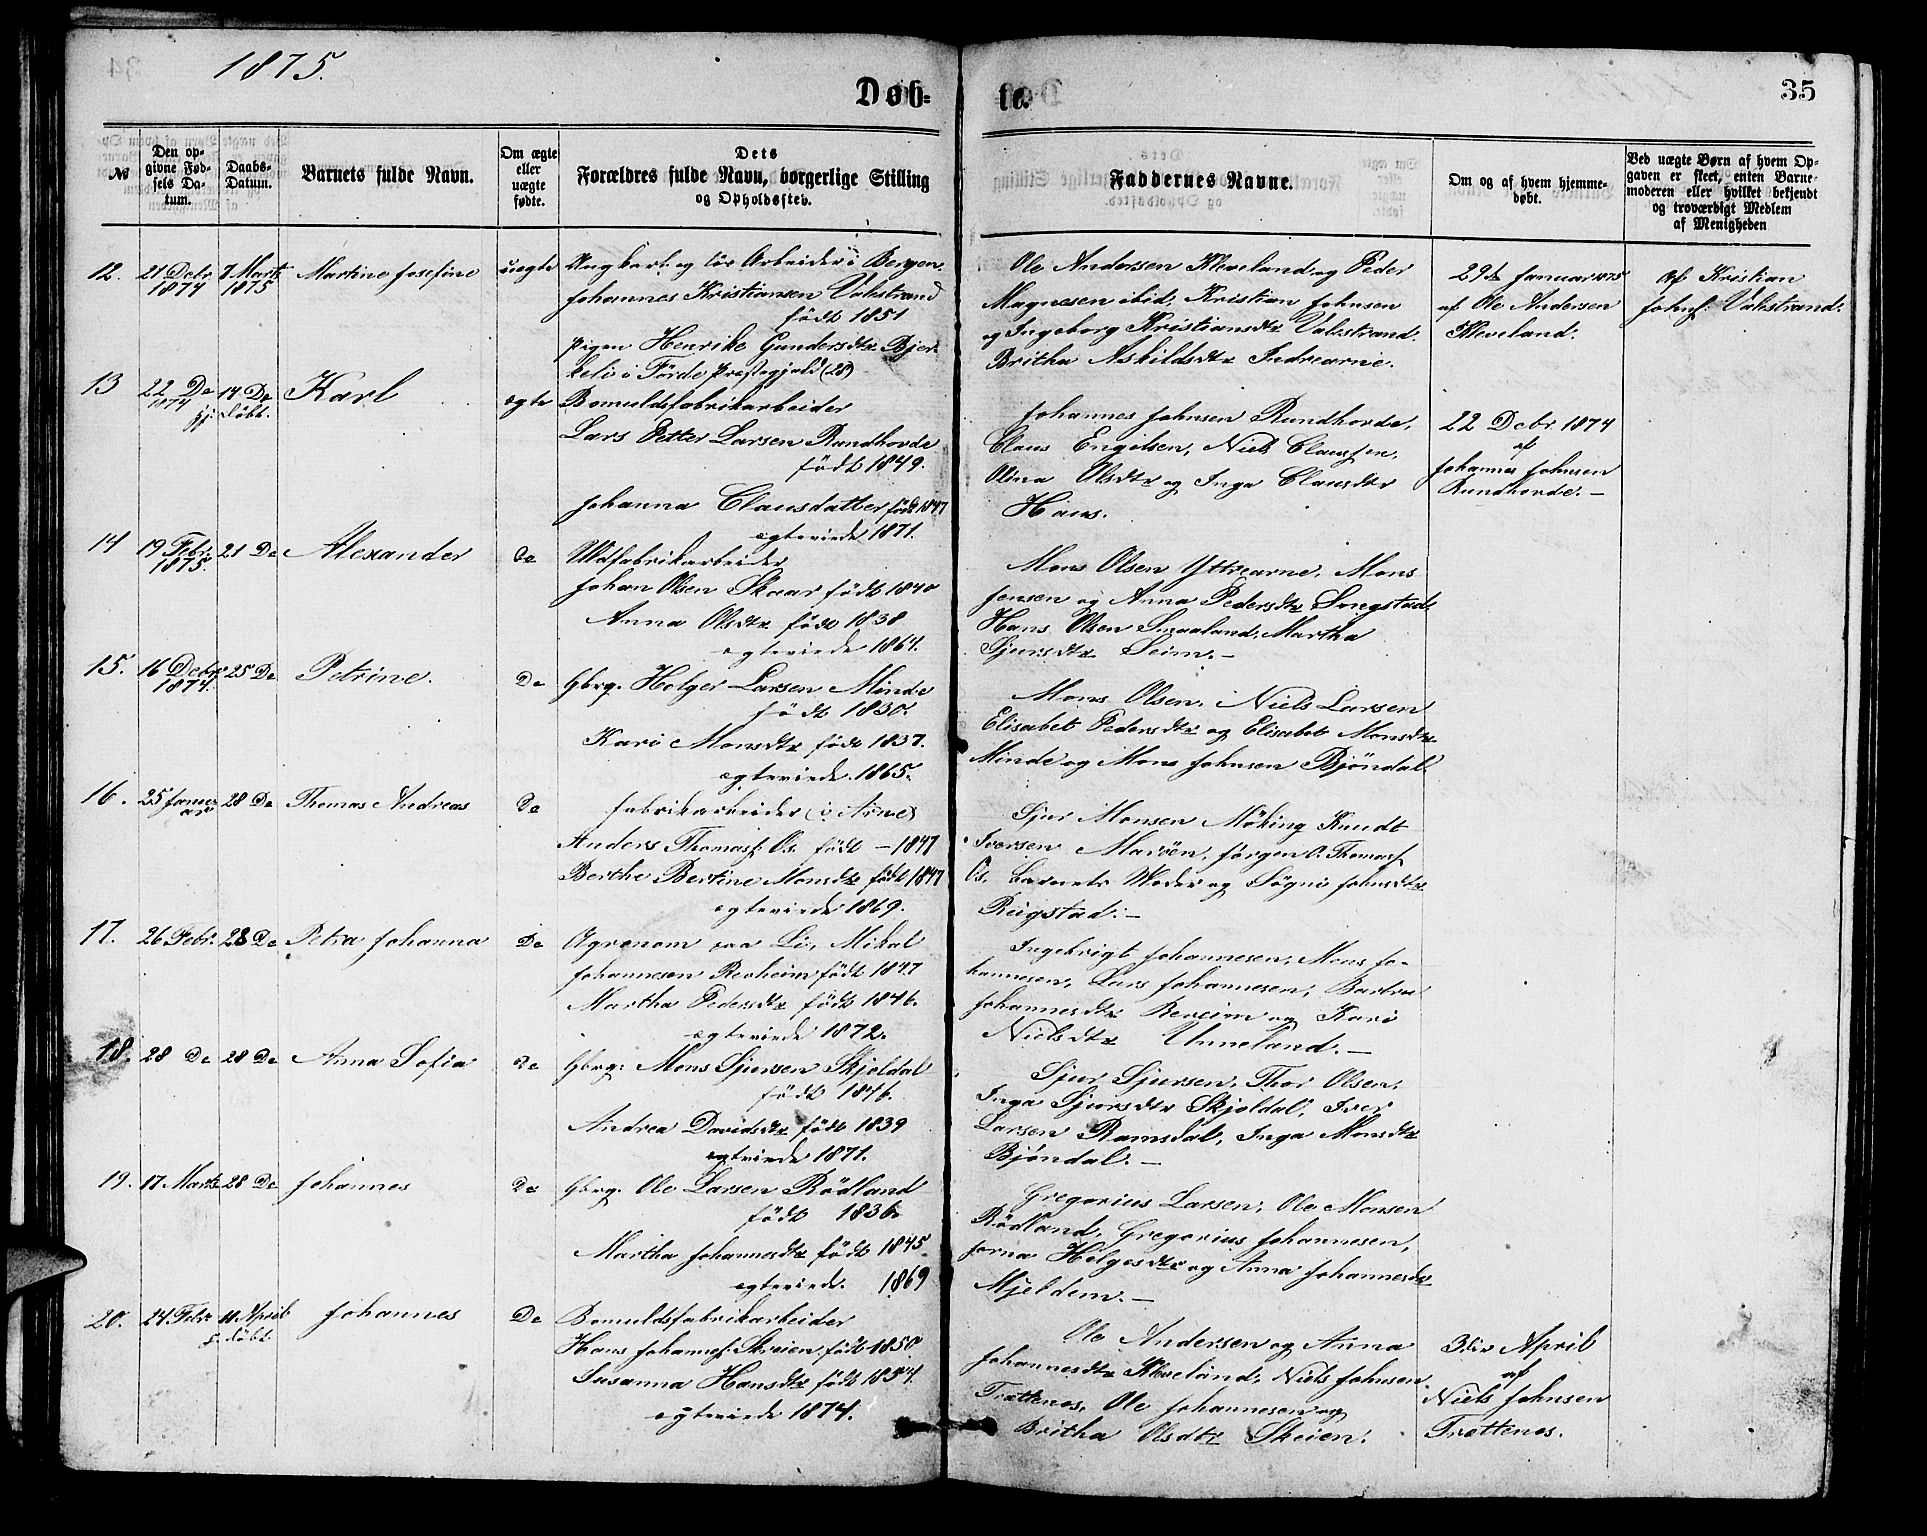 1875.
Døb-
te.
35
№
Den op-
givne Fød-
sels Da-
tum.
Daabs-
Datum.
Barnets fulde Navn.
Om ægte
eller
uægte
fødte.
Dets
Forældres fulde Navn, borgerlige Stilling
og Opholdssted.
Faddernes Navne.
Om og af hvem hjemme-
døbt.
Ved uægte Børn af hvem Op-
gaven er skeet, enten Barne-
moderen eller hvilket bekjendt
og troværdigt Medlem
af Menigheden
12. 21 Decbr 1874
7 Marts 1875
Martine Josefine
uegte
Ungkarl og løs Arbeider i Bergen
Johannes Kristiansen Valestrand
født 1851
Pigen Henrike Gundersdtr Bjer-
keli i Förde Præstegjeld (28)
Ole Anderssen Kleveland og Peder
Magnesen ibid, Kristian Johnsen
og Ingeborg Kristiansdtr Valestrand.
Britha Askildsdtr Indrearne.
29de Januar 1875
af Ole Andersen
Kleveland.
af Kristian
Johns. Valestrand.
13 22 De 1874
14 De
hj. døbt.
Karl
egte
Bomuldsfabrikarbeider
Lars Petter Larsen Rundhovde
født 1849.
Johanna Clausdatter født 1847
egteviede 1871.
Johannes Johnsen Rundhovde,
Claus Engelsen, Niels Claussen,
Olina Olsdtr og Inga Clausdtr
Haus.
22 Decbr 1874
af
Johannes Johnsen
Rundhovde. –
14 19 Febr. 1875.
21 De
Alexander
De
Uldfabrikarbeider
Johan Olsen Skaar født 1840
Anna Olsdtr født 1838
egteviede 1864.
Mons Olsen Yttrearne, Mons
Jensen og Anna Pedersdtr Songstad,
Hans Olsen Smaaland, Martha
Sjursdtr Seim. –
15. 16 Decbr 1874.
25 De
Petrine.
De
Gbrg. Holger Larsen Minde
født 1830.
Kari Monsdtr født 1837.
egteviede 1865.
Mons Olsen, Niels Larsen
Elisabet Pedersdtr og Elisabet Monsdtr
Minde og Mons Johnsen Bjöndal.
16. 25 Janu-
ar
28 De
Thomas Andreas
De
Fabrikarbeider (i Arne)
Anders Thomass. Os. født – 1847
Berthe Bertine Monsdtr født 1847
egteviede 1869.
Sjur Monsen Möking Knudt
Iversen Marøen, Jørgen O. Thomass
Os, Barnets Moder og Sögni Johnsdtr
Reigstad. –
17. 26 Febr.
28 De
Petra Johanna
De
Agronom paa Li, Mikal
Johannesen Revheim født 1847
Martha Pedersdtr født 1846.
egteviede 1872.
Ingebrigt Johannesen, Mons Jo-
hannesen, Lars Johannesen, Bartra
Johannesdtr Reveim og Kari
Nielsdtr Unneland. –
18. 28 De
28 De
Anna Sofia
De
Gbrg. Mons Sjursen Skjoldal
født 1846.
Andrea Davidsdtr født 1839
egteviede 1871.
Sjur Sjursen, Thor Olsen,
Inga Sjursdtr Skjoldal, Iver
Larsen Ramsdal, Inga Monsdtr
Bjöndal. –
19. 17 Marts
28 De
Johannes
De
Gbrg. Ole Larsen Rödland
født 1836
Martha Johannesdtr født 1845
egteviede. 1869
Gregorius Larsen, Ole Monsen
Rödland, Gregorius Johannesen,
Jorna Helgesdtr og Anna Johannesdtr
Mjeldem. –
20. 24 Febr
11 April
hj. døbt
Johannes
De
Bomuldsfabrikarbeider
Hans Johannes. Skeien født 1850
Susanna Hansdtr født 1854.
egteviede 1874.
Ole Andersen og Anna
Johannesdtr Kleveland, Niels Johnsen
Trættenes, Ole Johannesen og
Britha Olsdtr Skeien.
3die April
af
Niels Johnsen
Trættenes.